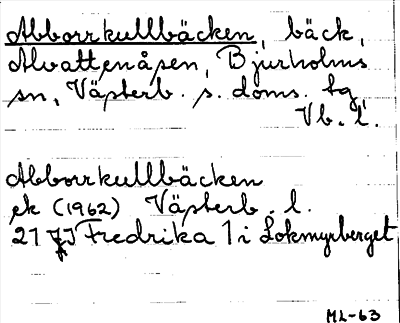 Abborrkullbäcken, bäck,
Alvattenåsen, Bjurholms
sn, Västerb. s. doms. tg,
Vb. l.
Abborrkullbäcken
ek (1962) Västerb. l.
21 Fredrika 1 i Lokmyrberget
ML-63